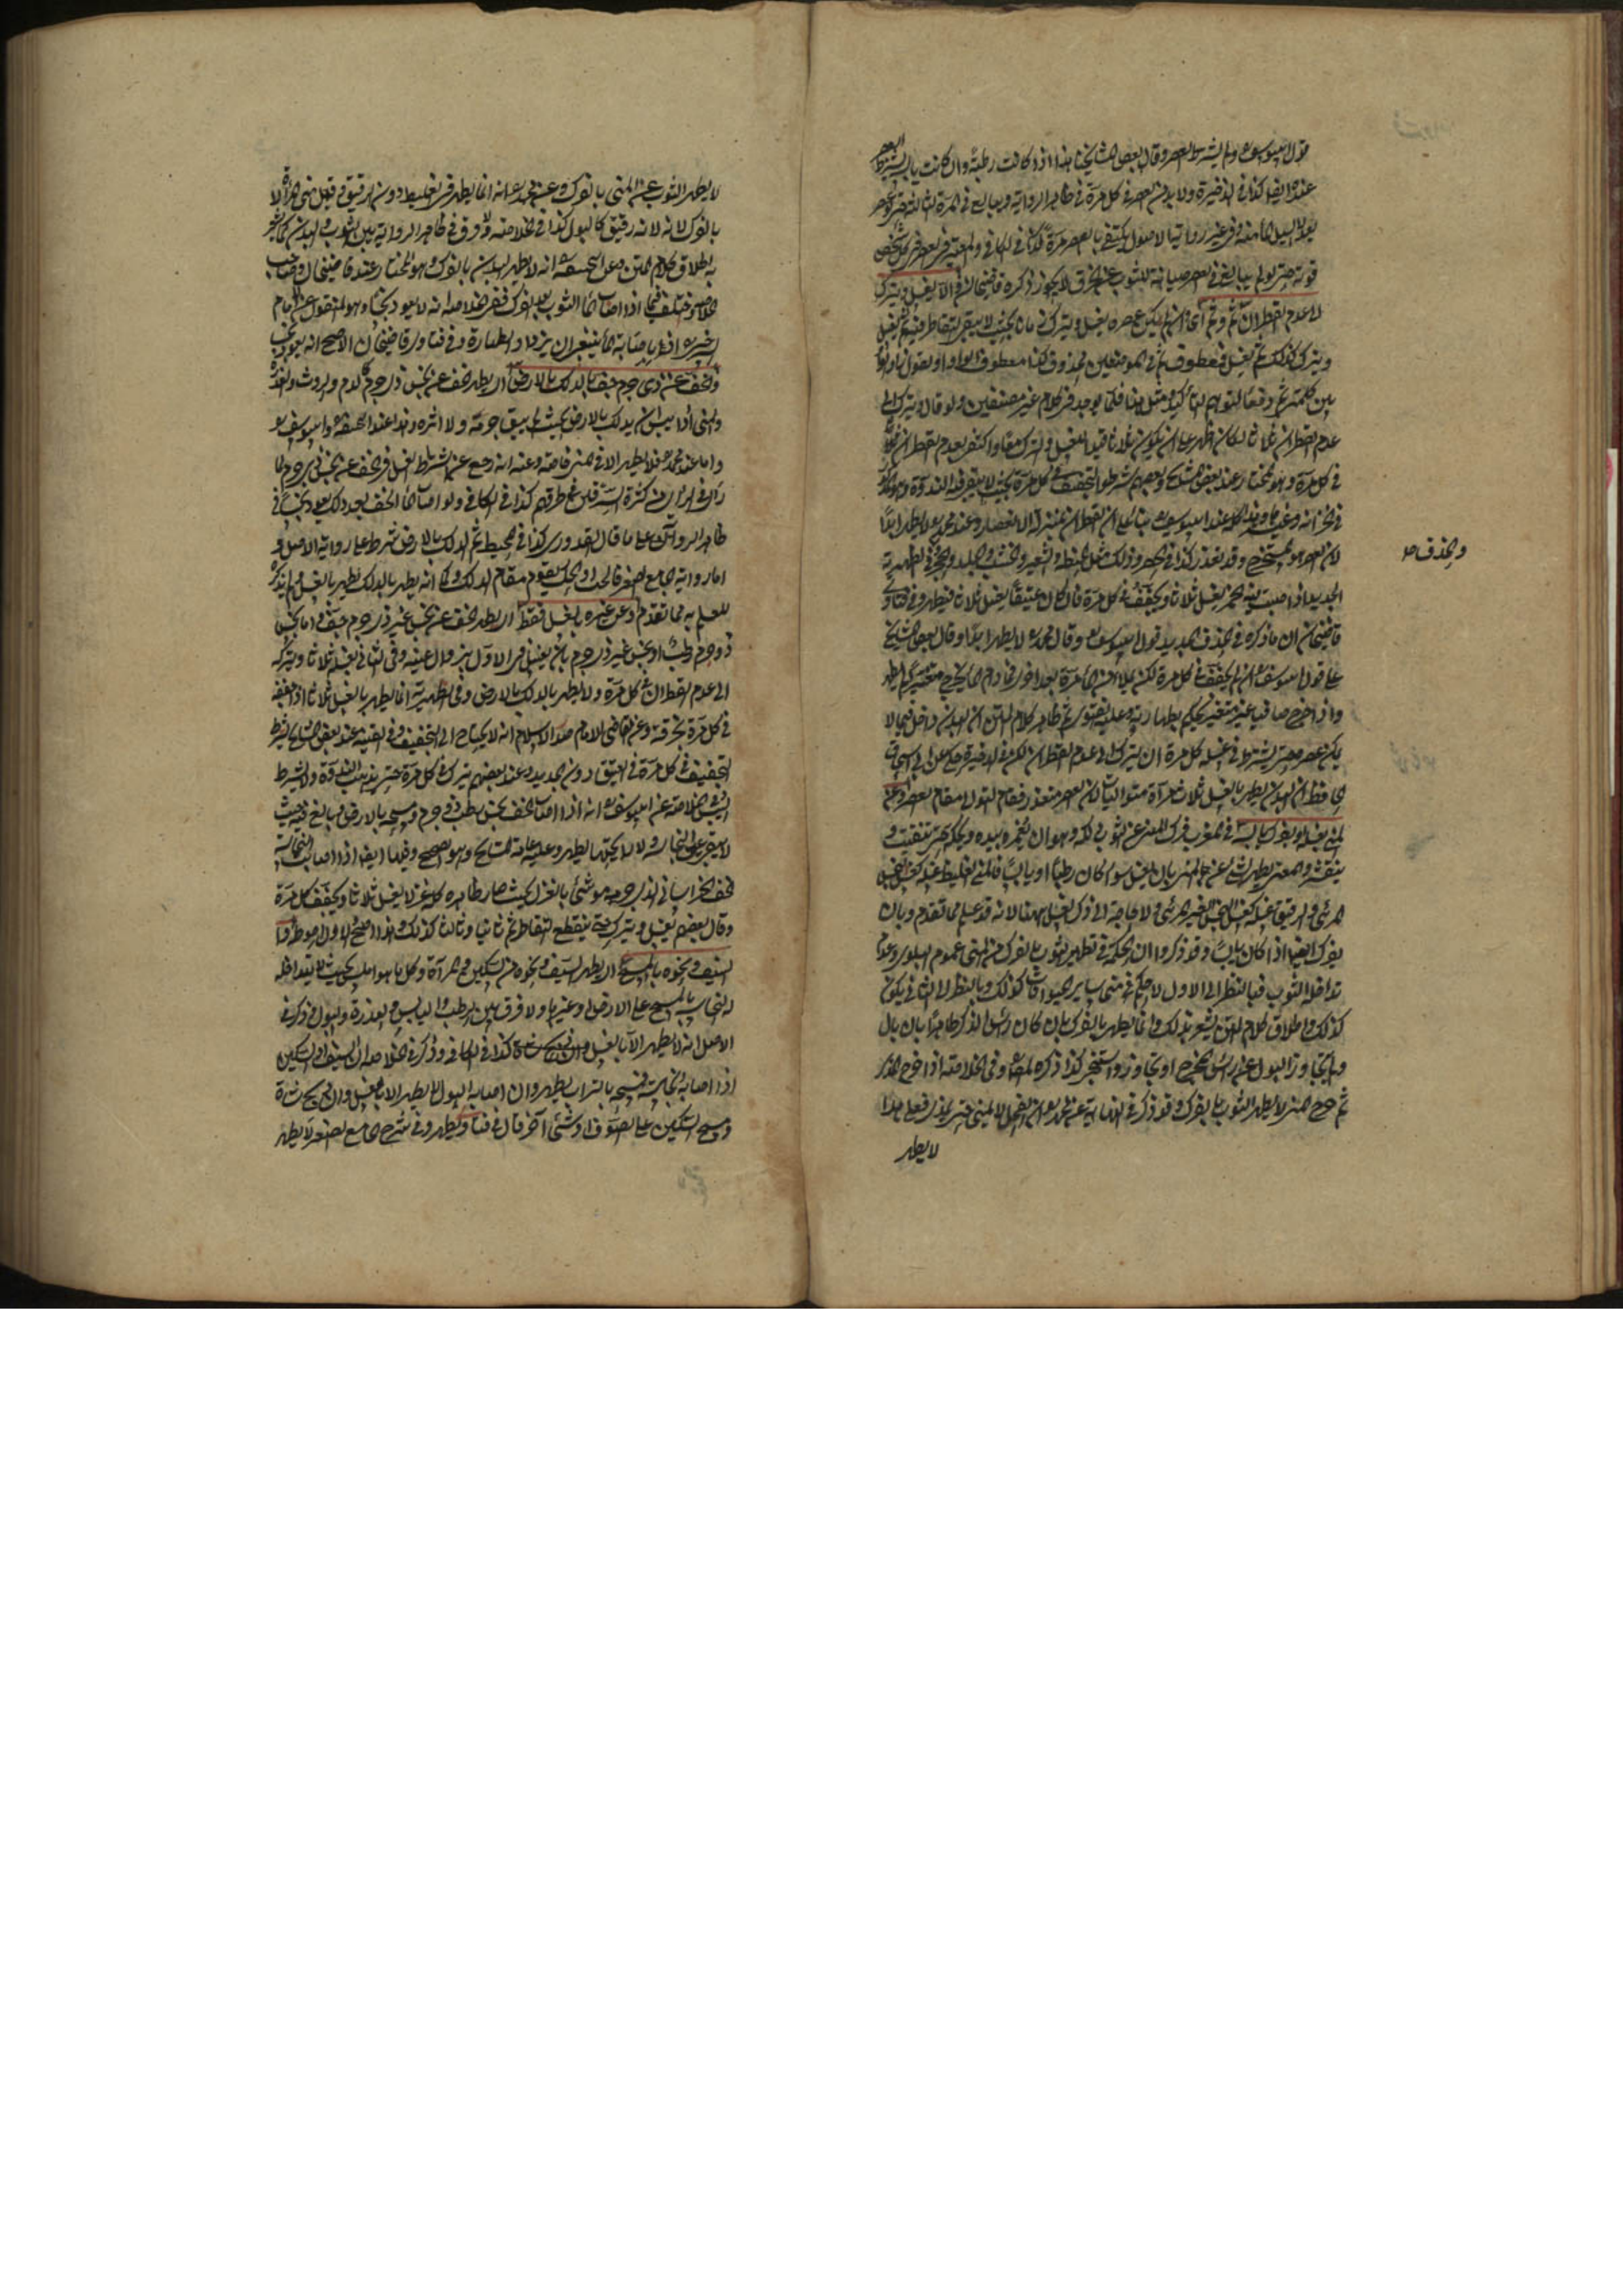 قول ابيوسف ولم يشترط العصر وقال بعض مشايخنا هذا اذا كانت رطبة وان كانت يابسة
عنده ايضا كذا في الذخيرة ولا بد من العصر في كل مرة في ظاهر الرواية ويبالغ في المرة الثالثة
وفي غير رواية الاصول يكتفى بالعصر مرة كذا في الكافي والمعتبر في العصر كل شخص
قوته حتى لو لم يبالغ في العصر صيانة للثوب عن الخرق لا يجوز ذكره قاضيخان والا يغسل ويترك
الى عدم القطران ثم وثم اي ان لم يمكن عصره يغسل ويترك زمانا بحيث لا يبقى التقاطر فيه ثم يغسل
ويترك كذلك ثم يغسل فمعطوف ثم في الموضعين محذوف
عدم القطران ثلاثا لكان اظهر على ان يكون ثلاثا قيدا للغسل والترك معا واكتفى بعدم القطران
في كل مرة وهو المختار عند بعض المشايخ وبعضهم شرطوا التجفيف في كل مرة بحيث لا يبقى فيه الندوة
وهذا كله عند ابيوسف بناء على ان القطران بمنزلة الانعصار وعند محمد لا يطهر ابدا
لان العصر هو المستخرج وقد تعذر كذا في وذلك مثل الحنطة والشعير والخشب والجلد
والخذف صح
الجديد اذا اصبت فيه الخمر يغسل ثلاثا ويجفف في كل مرة فان كان عتيقا يغسل ثلاثا فيطهر وفي فتاوى
قاضيخان ان ما ذكره في الخذف الجديد قول ابيوسف وقال محمد لا يطهر ابدا وقال بعض المشايخ
على قول ابيوسف ان لم يجفف في كل مرة لكن يملا من الماء مرة بعد اخرى فما دام الماء يخرج متغيرا لا يطهر
واذا خرج صافيا غير متغير يحكم بطهارته وعليه الفتوى ثم ظاهر كلام المتن ان البدن داخل فيما لا
يمكن عصره حتى يشترط في غسله كل مرة ان يترك الى عدم القطران لكن في الذخيرة حكى عن ابي اسحاق
الحافظ ان البدن يطهر بالغسل ثلاث مرات متواليات لان العصر متعذر فقام التوالي مقام العصر وعن
المني بغسله او بفرك يابسه في المغرب فرك المني عن الثوب دلكه وهو ان يغمزه بيده ويحكه حتى يتفتت و
يتقشر والمعنى يطهر الشيء عن المني بان يغسل سواء كان رطبا او يابسا فالمني الغليظ غسله كغسل النجس
المرئي والرقيق غسله كغسل النجس الغير المرئي ولا حاجة الى ذكر الغسل ههنا لانه قد علم مما تقدم وبان
يفرك ايضا اذا كان يابسا وقد ذكروا ان الحكمة في تطهير الثوب بالفرك من المني عموم البلوى وعدم
تداخله الثوب فبالنظر الى الاول لا حكم في مني سائر الحيوانات كذلك وبالنظر الى الثاني يكون
كذلك واطلاق كلام المتن يشعر بذلك وانما يطهر بالفرك بان كان رأس الذكر طاهرا بان بال
ولم يتجاوز البول عن رأس المخرج او تجاوز واستنجى كذا ذكره المص وفي الخلاصة اذا خرج المذي
ثم خرج المني لا يطهر الثوب بالفرك وقد ذكر في النهاية عن محمد
لا يطهر
لا يطهر الثوب عن المني بالفرك وعن محمد انه انما يطهر في الغليظ دون الرقيق وقيل مني المرأة لا
بالفرك لانه رقيق كالبول كذا في الخلاصة ولا فرق في ظاهر الرواية بين الثوب والبدن كما يشعر
به اطلاق كلام المتن وعن ابيحنيفة انه لا يطهر البدن بالفرك وهو المختار عند قاضيخان وصاحب
الخلاصة واختلف فيما اذا اصاب الماء الثوب بعد الفرك ففي الخلاصة انه لا يعود نجسا وهو المنقول عن الامام
وفي فتاوى قاضيخان الاصح انه يعود نجسا
والخف عن ذي جرم جف بالدلك بالارض اي يطهر الخف عن نجس ذي جرم كالدم والروث والعذرة
والمني اذا يبس ان يدلك بالارض بحيث لم يبق جرمه ولا اثره وهذا عند ابيحنيفة وابيوسف
واما عند محمد فلا يطهر الا في المني خاصة وعنه انه رجع عن اشتراط الغسل في الخف عن نجس ذي جرم لما
رأى في الري من كثرة السرقين في طرقهم كذا في الكافي ولو اصاب الماء الخف بعد الدلك يعود نجسا في
ظاهر الرواية على ما قال القدوري كذا في المحيط ثم الدلك بالارض شرط على رواية الاصل و
اما رواية الجامع الصغير فالحت والحك يقوم مقام الدلك وكما انه يطهر بالدلك يطهر بالغسل ولم يذكره
للعلم به مما تقدم وعن غيره بالغسل فقط اي يطهر الخف عن نجس غير ذي جرم جف اما نجس
ذو جرم رطب او نجس غير ذي جرم بان يغسل في الاول بزوال عينه وفي الثاني يغسله ثلاثا ويتركه
الى عدم القطران في كل مرة ولا يطهر بالدلك بالارض وفي الظهيرية انما يطهر بالغسل ثلاثا اذا جففه
في كل مرة بخرقة وعن القاضي الامام صدر الاسلام انه لا يحتاج الى التجفيف وفي القنية عند بعض المشايخ يشترط
التجفيف في كل مرة في العتيق دون الجديد وعند بعضهم يترك في كل مرة حتى يذهب الندوة ولا يشترط
اليبس في الخلاصة عن ابيوسف انه اذا اصاب الخف نجس رطب ذو جرم ومسحه بالارض يبالغ فيه بحيث
لا يبقى على النجاسة ولا رايحتها يطهر وعليه عامة المشايخ وهو الصحيح وفيها ايضا اذا اصابت النجاسة
خف الخراساني الذي جرمه موشى بالغزل بحيث صار ظاهره كله غزلا يغسل ثلاثا ويجفف كل مرة
وقال بعضهم يغسل ويترك حتى ينقطع التقاطر ثم ثانيا وثالثا كذلك وهذا اصح والاول احوط
السيف ونحوه بالمسح اي يطهر السيف ونحوه من السكين والمرآة وكل ما هو املس بحيث لا يتداخله
النجاسة بالمسح على الارض او غيرها ولا فرق بين الرطب واليابس والعذرة والبول وذكر في
الاصل انه لا يطهر الا بالغسل كذا في الكافي وذكر في الخلاصة ان السيف او السكين
اذا اصابه نجاسة فمسحه بالتراب يطهر وان اصابه البول لا يطهر الا بالغسل
ومسح السكين على الصوف او شيء آخر قال في فتاوى يطهر وفي شرح الجامع الصغير لا يطهر